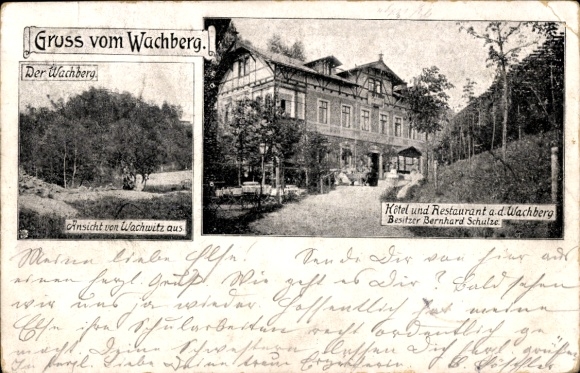 Gruss vom Wachberg.
Der Wachberg.
Ansicht von Wachwitz aus
Hôtel und Restaurant a.d. Wachberg
Besitzer Bernhard Schulze.
Meine liebe Else! Sende Dir von hier aus
einen herzl. Gruß. Wie geht es Dir? Bald sehen
wir uns ja wieder. Hoffentlich hat meine
Else ihre Schularbeiten recht ordentlich ge
macht. Deine Schwestern lassen Dich herzl. grüßen
In herzl. Liebe Deine treue